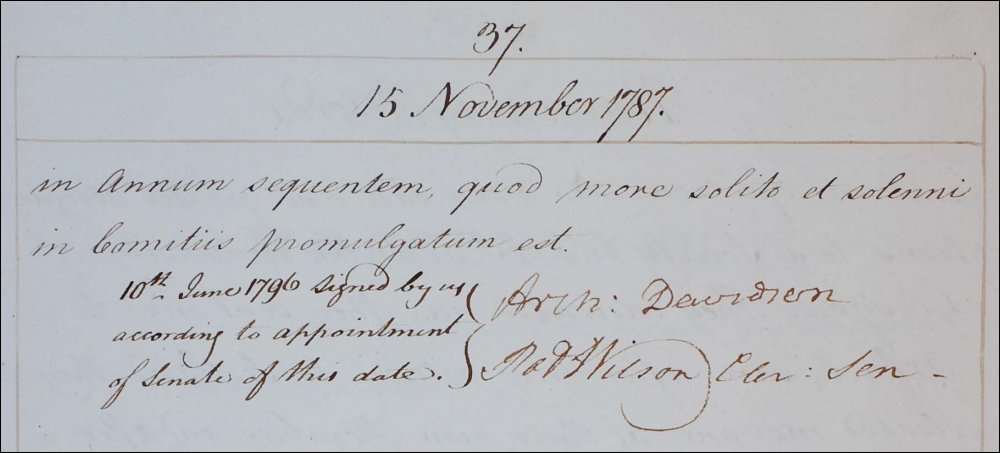 37.
15 November 1787.
in Annum sequentem, quod more solito et solenni
in Comitiis promulgatum est.
10th June 1796 Signed by us
according to appointment
of Senate of this date.
Arch: Davidson
Wilson Cler: Sen